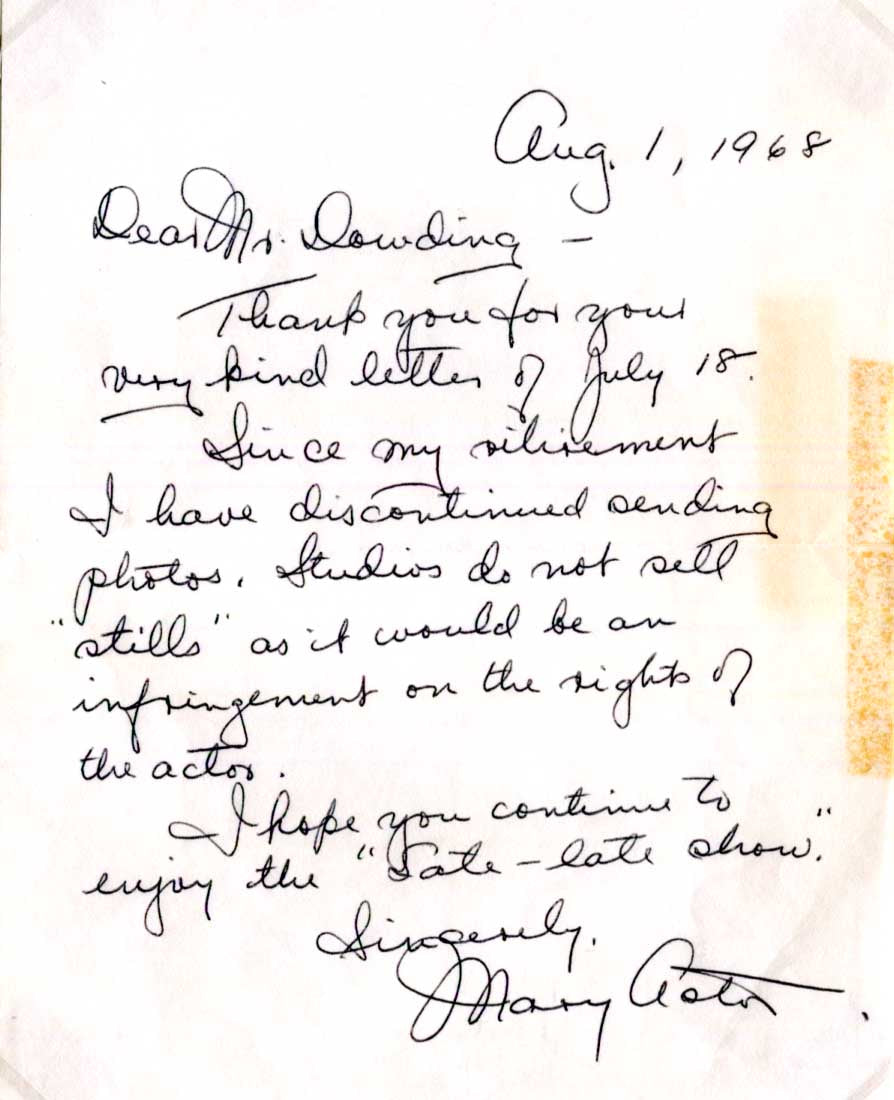 Aug. 1, 1968
Dear Mr. Dowding —
Thank you for your
very kind letter of July 18.
Since my retirement
I have discontinued sending
photos. Studios do not sell
"stills" as it would be an
infringement on the rights of
the actor.
I hope you continue to
enjoy the "Late-late show."
Sincerely,
Mary Astor